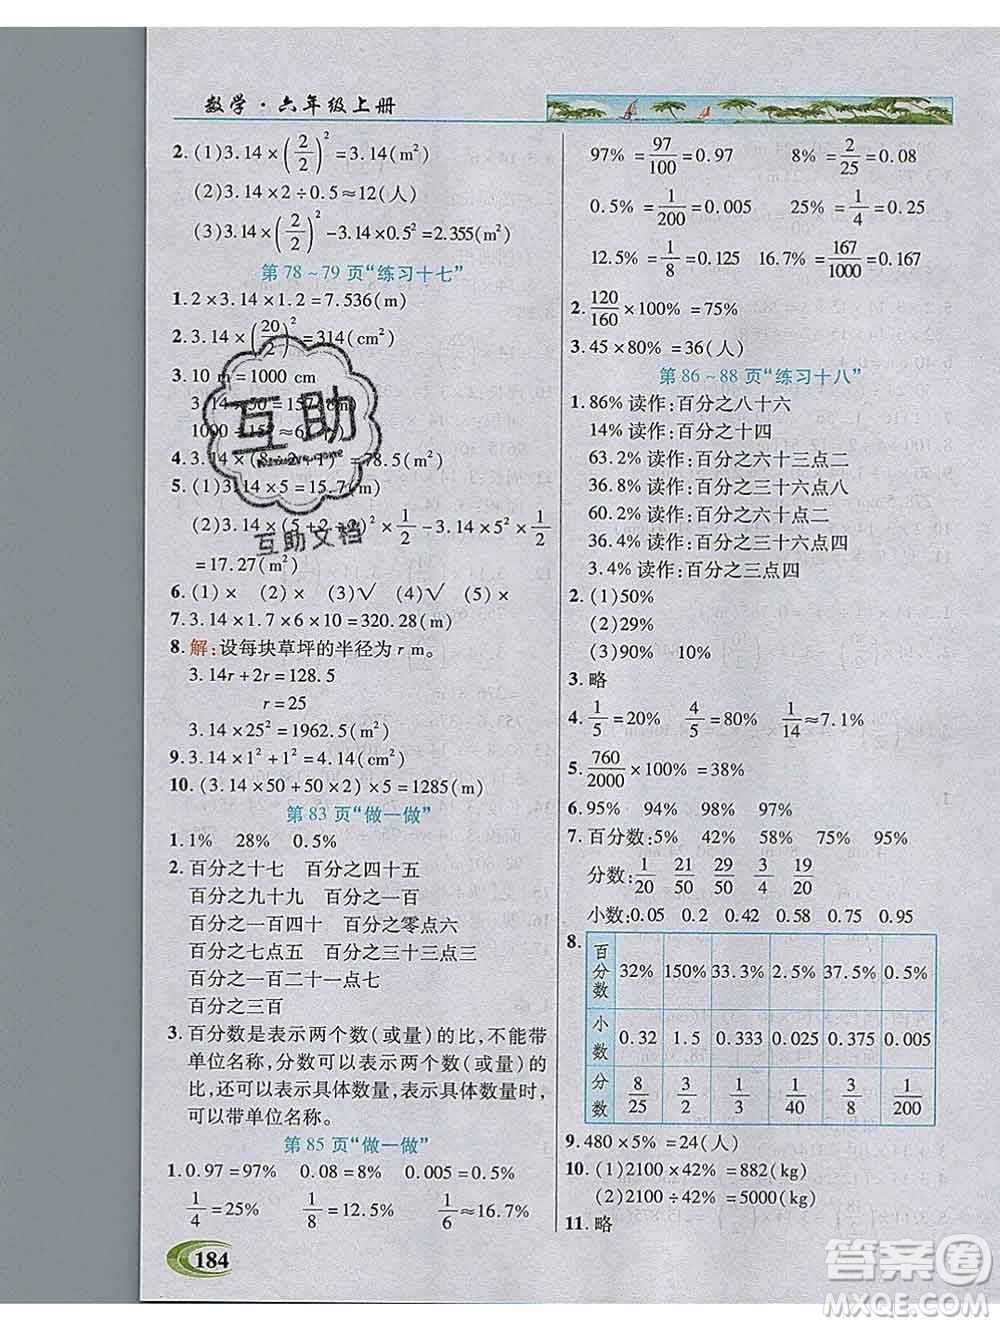 数学·六年级上册
2.(1)3.14×(2/2)²=3.14(m²)
(2)3.14×2÷0.5≈12(人)
(3)3.14×(2/2)²-3.14×0.5²=2.355(m²)
第78~79页“练习十七”
1.2×3.14×1.2=7.536(m)
2.3.14×(20/2)²=314(cm²)
3.10 m=1000 cm
3.14×50=157(cm)
4.3.14×(8÷2+1)²=78.5(m²)
5.(1)3.14×5=15.7(m)
(2)3.14×(5+2+2)²×1/2-3.14×5²×1/2
=17.27(m²)
6.(1)× (2)× (3)√ (4)√ (5)×
7.3.14×1.7×6×10=320.28(m)
8.解:设每块草坪的半径为r m。
3.14r+2r=128.5
r=25
3.14×25²=1962.5(m²)
9.3.14×1²+1²=4.14(cm²)
10.(3.14×50+50×2)×5=1285(m)
第83页“做一做”
1.1% 28% 0.5%
2.百分之十七 百分之四十五
百分之九十九 百分之一百
百分之一百四十 百分之零点六
百分之七点五 百分之三十三点三
百分之一百二十一点七
百分之三百
3.百分数是表示两个数(或量)的比,不能带
单位名称,分数可以表示两个数(或量)的
比,还可以表示具体数量,表示具体数量时,
可以带单位名称。
第85页“做一做”
1.0.97=97% 0.08=8% 0.005=0.5%
1/4=25% 1/8=12.5% 1/6≈16.7%
184
97%=97/100=0.97 8%=2/25=0.08
0.5%=1/200=0.005 25%=1/4=0.25
12.5%=1/8=0.125 16.7%=167/1000=0.167
2.120/160×100%=75%
3.45×80%=36(人)
第86~88页“练习十八”
1.86%读作:百分之八十六
14%读作:百分之十四
63.2%读作:百分之六十三点二
36.8%读作:百分之三十六点八
60.2%读作:百分之六十点二
36.4%读作:百分之三十六点四
3.4%读作:百分之三点四
2.(1)50%
(2)29%
(3)90% 10%
3.略
4.1/5=20% 4/5=80% 1/14≈7.1%
5.760/2000×100%=38%
6.95% 94% 98% 97%
7.百分数:5% 42% 58% 75% 95%
分数:1/20 21/50 29/50 3/4 19/20
小数:0.05 0.2 0.42 0.58 0.75 0.95
8.
百分数 32% 150% 33.3% 2.5% 37.5% 0.5%
小数 0.32 1.5 0.333 0.025 0.375 0.005
分数 8/25 3/2 1/3 1/40 3/8 1/200
9.480×5%=24(人)
10.(1)2100×42%=882(kg)
(2)2100÷42%=5000(kg)
11.略
互助
互助文档
答案圈
MXQE.COM